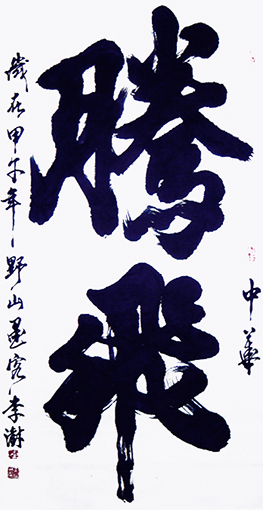 中華
騰飛
歲在甲午年、野山墨客、李澍